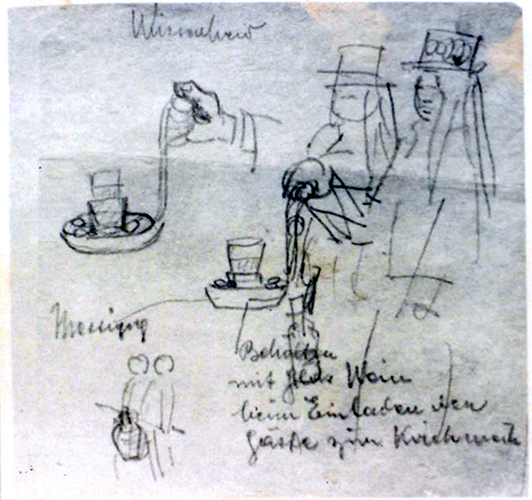 Messing
Behälter
mit Glas Wein
beim Einladen der
Gäste zum Kirchweih